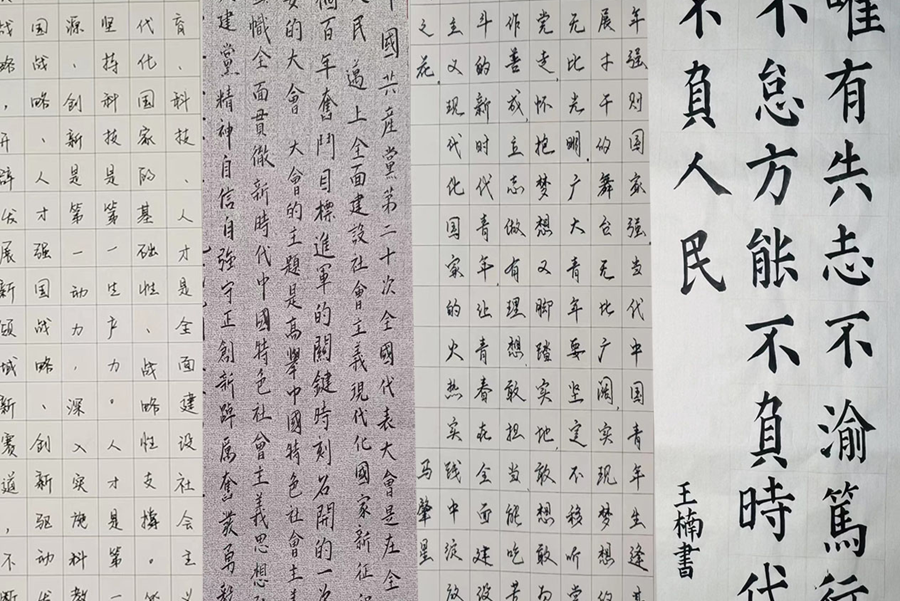 唯有矢志不渝篤行
不怠方能不負時代
不負人民
王楠書
年强则国家强。当代中国青年生逢其
展才干的舞台无比广阔，实现梦想
无比光明。广大青年要坚定不移听党
党走，怀抱梦想又脚踏实地，敢想敢为
作善成，立志做有理想敢担当能吃苦
斗的新时代青年，让青春在全面建设
主义现代化国家的火热实践中绽放
之花。
马肇星
中國共産黨第二十次全國代表大會是在全
民邁上全面建設社會主義現代化國家新征程
個百年奮鬥目標進軍的關鍵時刻召開的一次
要的大會大會的主題是高舉中國特色社會主
幟全面貫徹新時代中國特色社會主義思想
建黨精神自信自強守正創新踔厲奮發勇毅
育、科技、人才是全面建设社会主义
代化国家的基础性、战略性支撑。
坚持科技是第一生产力。人才是第一
源、创新是第一动力，深入实施科教
国战略、人才强国战略、创新驱动发
战略，开辟发展新领域新赛道，不断